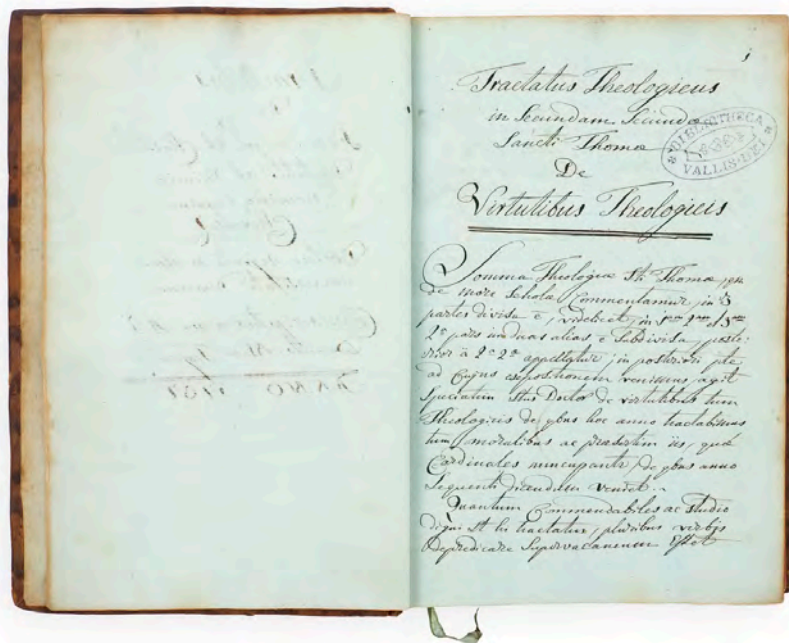 1
Tractatus Theologicus
in Secundam Secundæ
Sancti Thomæ
De
Virtutibus Theologicis
BIBLIOTHECA
VALLIS-DEI
Summa Theologiæ Sti Thomæ, qm
de more Scholæ Commentamur, in 3
partes divisa e, videlicet, in 1am 2am et 3am
2a pars in duas alias e Subdivisa, poste:
rior a 2a 2æ appellatur; in posteriori pte
ad Cujus expositionem venimus, agit
Speciatim Stus Doctor de virtutibus tum
Theologicis de qbus hoc anno tractabimus
tum moralibus ac præsertim iis, quæ
Cardinales nuncupantr, de qbus anno
Sequenti dicendum veniet.
Quantum Commendabiles ac Studio
digni St hi tractatus, pluribus verbis
deprædicare Supervacaneum Esset